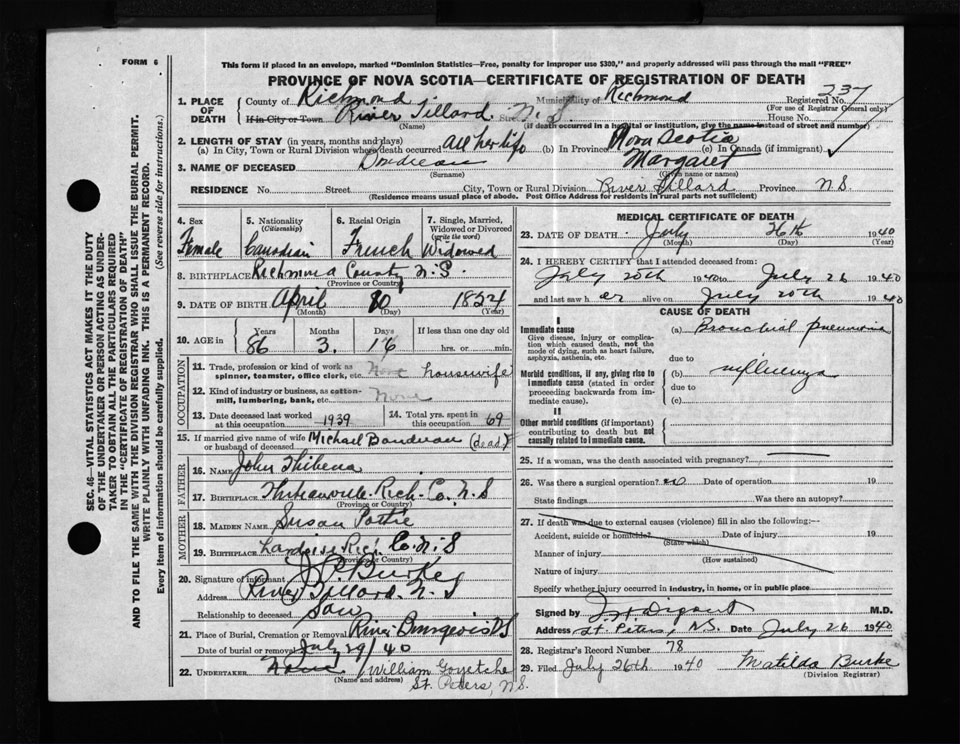 FORM 6
This form if placed in an envelope, marked "Dominion Statistics—Free, penalty for improper use $300," and properly addressed will pass through the mail "FREE"
PROVINCE OF NOVA SCOTIA—CERTIFICATE OF REGISTRATION OF DEATH
1. PLACE OF DEATH
County of Richmond Municipality of Richmond Registered No. 237
(For use of Registrar General only)
If in City or Town River Tillard. N.S. Street House No.
(Name) (if death occurred in a hospital or institution, give the name instead of street and number)
2. LENGTH OF STAY (in years, months and days)
(a) In City, Town or Rural Division where death occurred All her life (b) In Province Nova Scotia (c) In Canada (if immigrant)
3. NAME OF DECEASED Margaret
(Surname) (Given name or names)
RESIDENCE No. Street City, Town or Rural Division River Tillard Province N.S.
(Residence means usual place of abode. Post Office Address for residents in rural parts not sufficient)
4. Sex Female
5. Nationality (Citizenship) Canadian
6. Racial Origin French
7. Single, Married, Widowed or Divorced (write the word) Widowed
8. BIRTHPLACE Richmond County N.S.
(Province or Country)
9. DATE OF BIRTH April 10 1854
(Month) (Day) (Year)
10. AGE in Years 86 Months 3. Days 16 If less than one day old hrs. or min.
OCCUPATION
11. Trade, profession or kind of work as spinner, teamster, office clerk, etc. None housewife
12. Kind of industry or business, as cotton-mill, lumbering, bank, etc. None
13. Date deceased last worked at this occupation 1939
14. Total yrs. spent in this occupation 69
15. If married give name of wife or husband of deceased Michael Boudreau (dead)
FATHER
16. NAME John
17. BIRTHPLACE Rich. Co. N.S
(Province or Country)
MOTHER
18. MAIDEN NAME Susan Pottie
19. BIRTHPLACE Co. N.S
(Province or Country)
20. Signature of informant J. P. Burke
Address River Tillard. N.S
Relationship to deceased
21. Place of Burial, Cremation or Removal River Bourgeois N.S
Date of burial or removal July 29/40
22. UNDERTAKER William Goyetche
(Name and address) St. Peters, N.S.
MEDICAL CERTIFICATE OF DEATH
23. DATE OF DEATH July 26th 1940
(Month) (Day) (Year)
24. I HEREBY CERTIFY that I attended deceased from:
July 20th 1940 to July 26 1940
and last saw her alive on July 20th 1940
CAUSE OF DEATH
I
Immediate cause
Give disease, injury or complication which caused death, not the mode of dying, such as heart failure, asphyxia, asthenia, etc.
(a) Bronchial pneumonia
due to
Morbid conditions, if any, giving rise to immediate cause (stated in order proceeding backwards from immediate cause).
(b) influenza
due to
(c)
II
Other morbid conditions (if important) contributing to death but not causally related to immediate cause.
25. If a woman, was the death associated with pregnancy?
26. Was there a surgical operation? no Date of operation 19
State findings Was there an autopsy?
27. If death was due to external causes (violence) fill in also the following:—
Accident, suicide or homicide? Date of injury 19
(State which)
Manner of injury
(How sustained)
Nature of injury
Specify whether injury occurred in industry, in home, or in public place
Signed by M.D.
Address St. Peters, N.S. Date July 26 1940
28. Registrar's Record Number 78
29. Filed July 26th 1940 Matilda Burke
(Division Registrar)
SEC. 46—VITAL STATISTICS ACT MAKES IT THE DUTY OF THE UNDERTAKER OR PERSON ACTING AS UNDERTAKER TO OBTAIN ALL THE PARTICULARS REQUIRED IN THE "CERTIFICATE OF REGISTRATION OF DEATH" AND TO FILE THE SAME WITH THE DIVISION REGISTRAR WHO SHALL ISSUE THE BURIAL PERMIT.
WRITE PLAINLY WITH UNFADING INK. THIS IS A PERMANENT RECORD.
Every item of information should be carefully supplied. (See reverse side for instructions.)